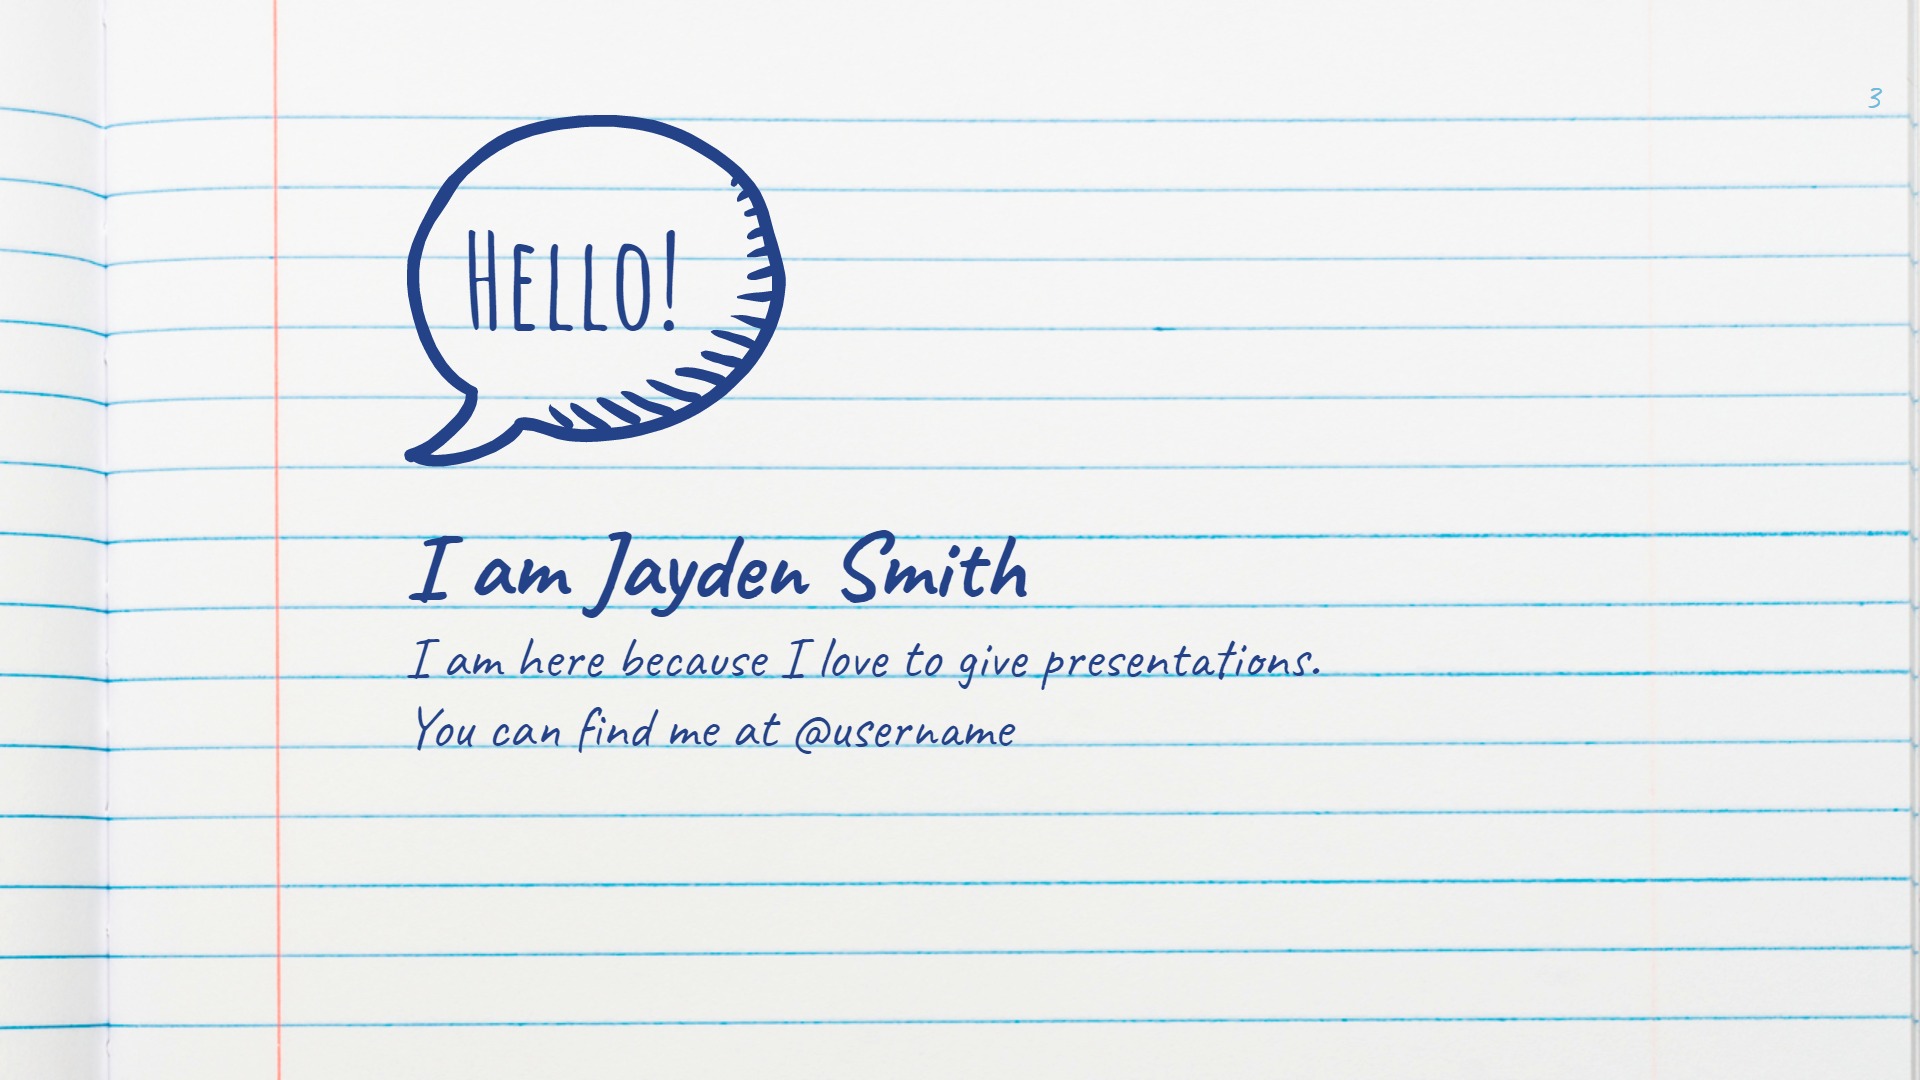 3
HELLO!
I am Jayden Smith
I am here because I love to give presentations.
You can find me at @username